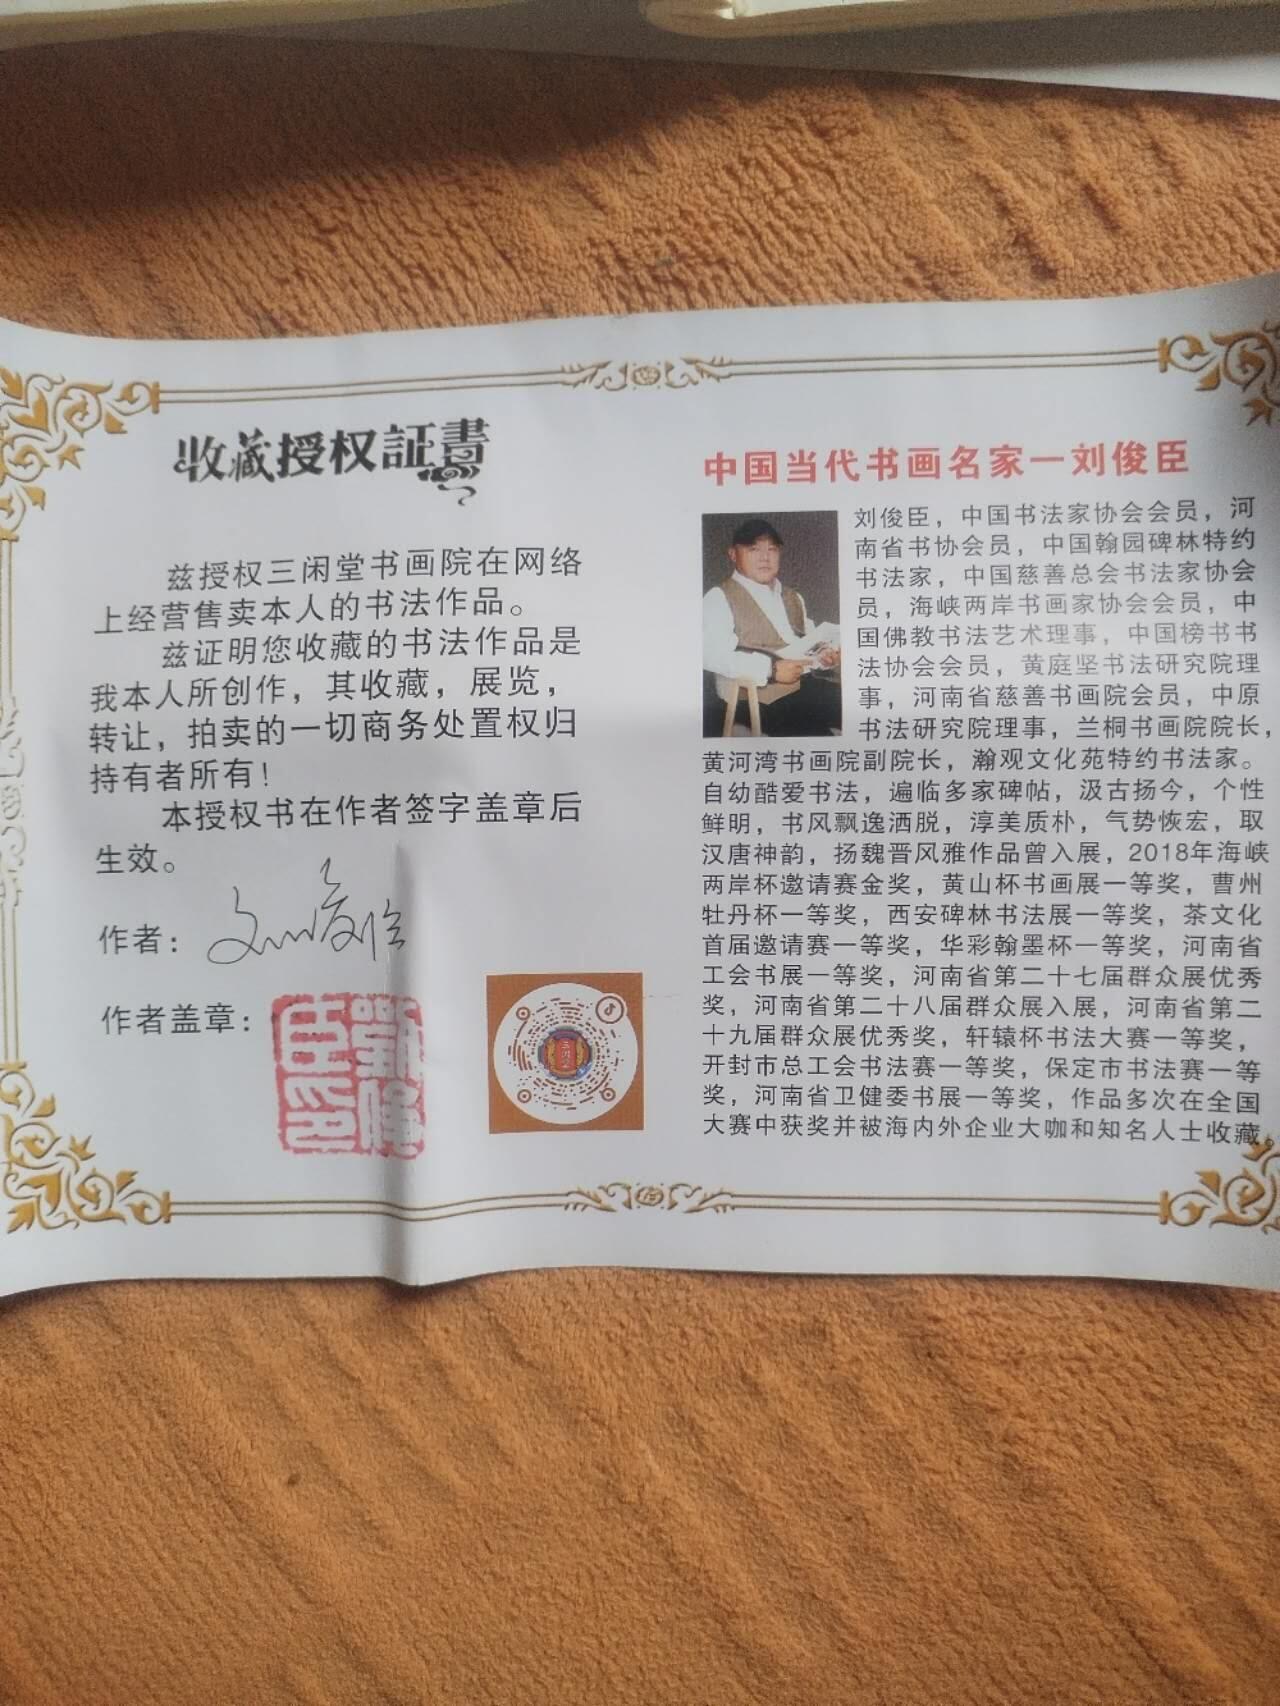 收藏授权証書
兹授权三闲堂书画院在网络
上经营售卖本人的书法作品。
兹证明您收藏的书法作品是
我本人所创作，其收藏，展览，
转让，拍卖的一切商务处置权归
持有者所有！
本授权书在作者签字盖章后
生效。
作者：刘俊臣
作者盖章：
三闲堂
中国当代书画名家一刘俊臣
刘俊臣，中国书法家协会会员，河
南省书协会员，中国翰园碑林特约
书法家，中国慈善总会书法家协会会
员，海峡两岸书画家协会会员，中
国佛教书法艺术理事，中国榜书书
法协会会员，黄庭坚书法研究院理
事，河南省慈善书画院会员，中原
书法研究院理事，兰桐书画院院长，
黄河湾书画院副院长，瀚观文化苑特约书法家。
自幼酷爱书法，遍临多家碑帖，汲古扬今，个性
鲜明，书风飘逸洒脱，淳美质朴，气势恢宏，取
汉唐神韵，扬魏晋风雅作品曾入展，2018年海峡
两岸杯邀请赛金奖，黄山杯书画展一等奖，曹州
牡丹杯一等奖，西安碑林书法展一等奖，茶文化
首届邀请赛一等奖，华彩翰墨杯一等奖，河南省
工会书展一等奖，河南省第二十七届群众展优秀
奖，河南省第二十八届群众展入展，河南省第二
十九届群众展优秀奖，轩辕杯书法大赛一等奖，
开封市总工会书法赛一等奖，保定市书法赛一等
奖，河南省卫健委书展一等奖，作品多次在全国
大赛中获奖并被海内外企业大咖和知名人士收藏。